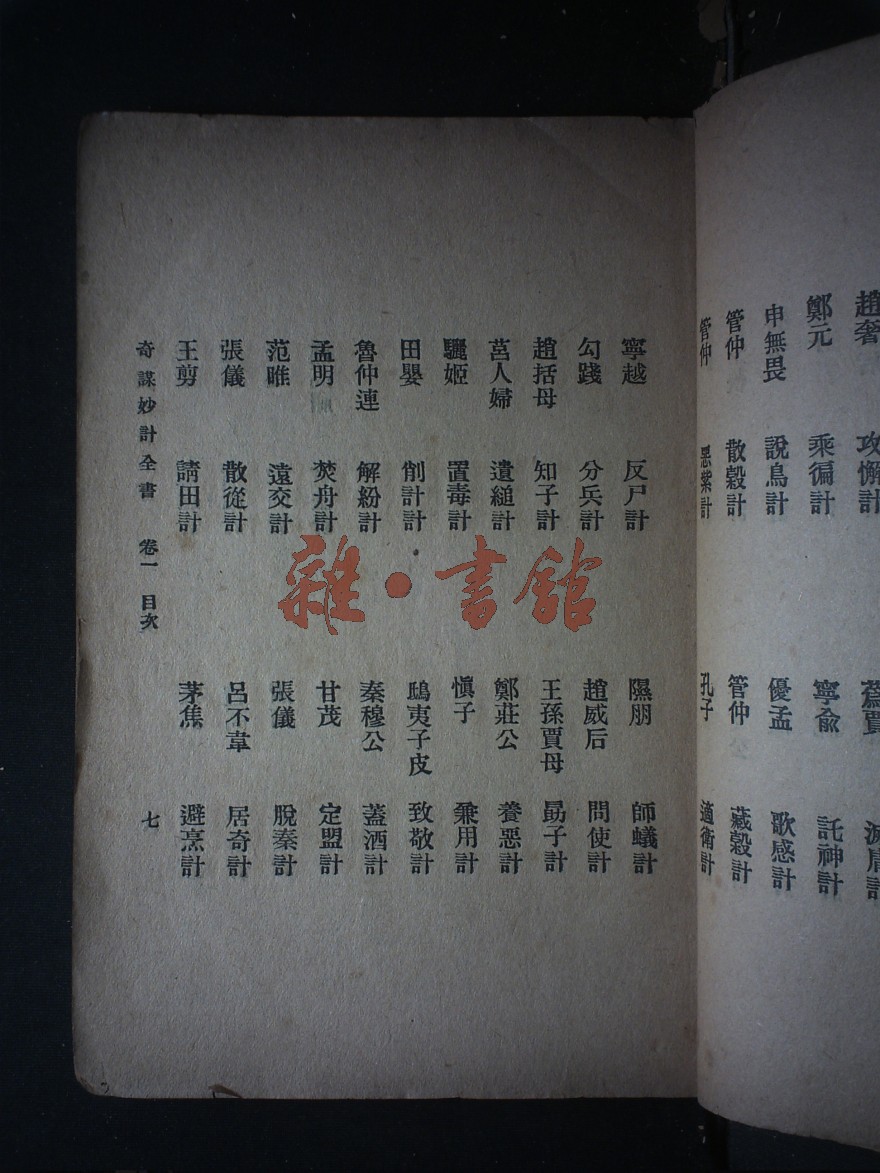 趙奢　攻懈計
蒍賈
鄭元　乘徧計
寧俞　託神計
申無畏　說鳥計
優孟　歌感計
管仲　散穀計
管仲　藏穀計
管仲　惡紫計
孔子　適衛計
寧越　反尸計
隰朋　師蟻計
勾踐　分兵計
趙威后　問使計
趙括母　知子計
王孫賈母　勗子計
莒人婦　遺縋計
鄭莊公　養惡計
驪姬　置毒計
慎子　兼用計
田嬰　削計計
鴟夷子皮　致敬計
魯仲連　解紛計
秦穆公　蓋酒計
孟明　焚舟計
甘茂　定盟計
范睢　遠交計
張儀　脫秦計
張儀　散從計
呂不韋　居奇計
王剪　請田計
茅焦　避烹計
奇謀妙計全書　卷一　目次　七
雜·書館